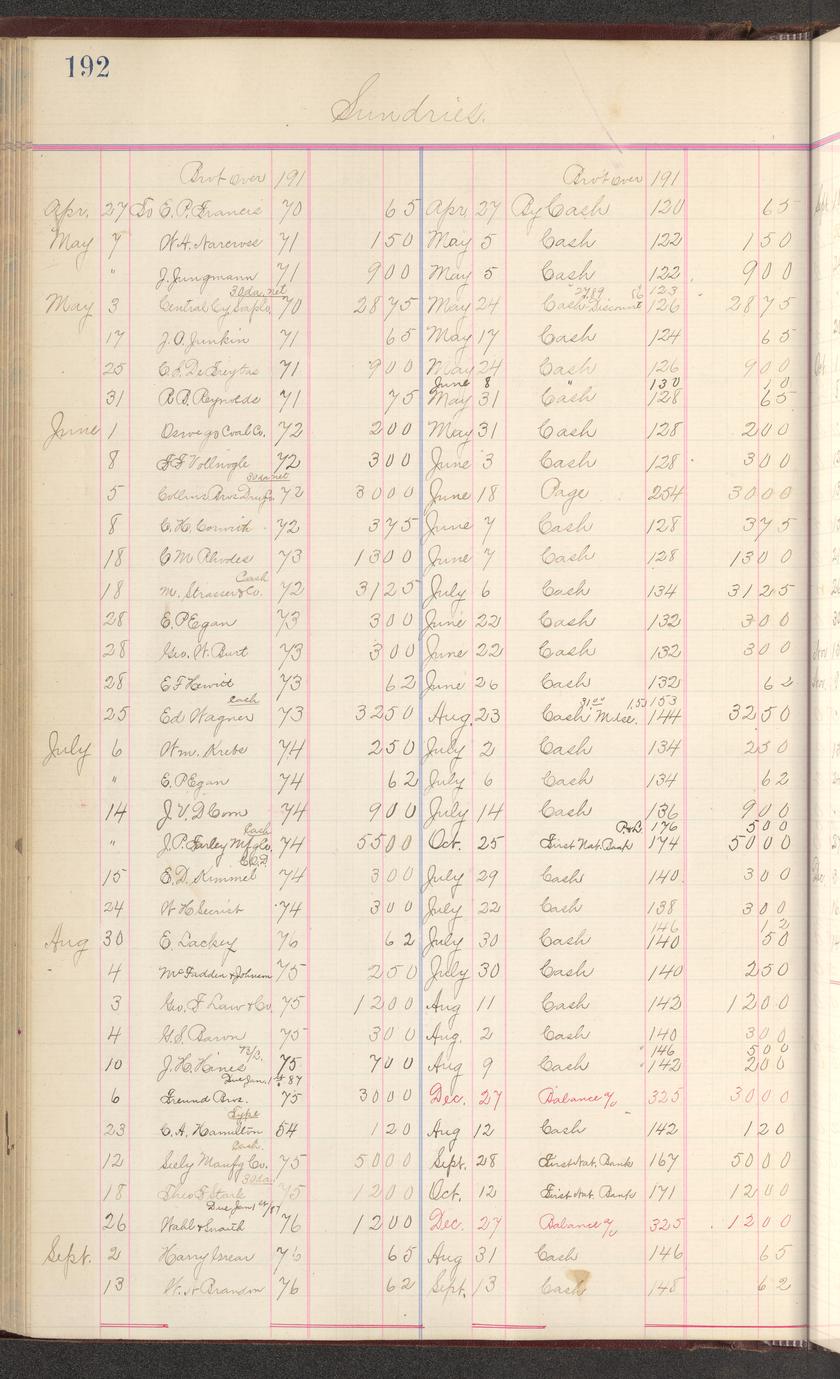 192
Sundries.
Brot over 191 Brot over 191
Apr. 27 To E. P. Francis 70 65 Apr 27 By Cash 120 65
May 7 W. H. Narcross 71 150 May 5 Cash 122 150
" J. Jungmann 71 900 May 5 Cash 122 900
30 da. net 2789 86 123
May 3 Central Cy Sup Co. 70 2875 May 24 Cash Discount 126 2875
17 J. O. Junkin 71 65 May 17 Cash 124 65
25 C. L. De Freytas 71 900 May 24 Cash 126 900
June 8 " 130 10
31 R. B. Reynolds 71 75 May 31 Cash 128 65
June 1 Oswego Coal Co. 72 200 May 31 Cash 128 200
8 F. F. Vollnogle 72 300 June 3 Cash 128 300
30 da net
5 Collins Bros Drug Co. 72 3000 June 18 Page 254 3000
8 C. H. Corwith 72 375 June 7 Cash 128 375
18 C M Rhodes 73 1300 June 7 Cash 128 1300
Cash
18 M. Strasser & Co. 72 3125 July 6 Cash 134 3125
28 E. P Egan 73 300 June 22 Cash 132 300
28 Geo. W. Burt 73 300 June 22 Cash 132 300
28 E F Hewitt 73 62 June 26 Cash 132 62
Cash 31.00 1.50 153
25 Ed Wagner 73 3250 Aug. 23 Cash Mdse. 144 3250
July 6 Wm. Krebs 74 250 July 2 Cash 134 250
" E. P Egan 74 62 July 6 Cash 134 62
14 J. V. D Corn 74 900 July 14 Cash 136 900
Cash P & L. 176 500
" J. P. Farley Mfg Co. 74 5500 Oct. 25 First Nat. Bank 174 5000
C.O.D.
15 E. D. Kimmel 74 300 July 29 Cash 140 300
24 W H Secrist 74 300 July 22 Cash 138 300
146 12
Aug 30 E. Lackey 76 62 July 30 Cash 140 50
4 McFadden & Johnson 75 250 July 30 Cash 140 250
3 Geo. F Law & Co. 75 1200 Aug 11 Cash 142 1200
4 G. S. Baron 75 300 Aug. 2 Cash 140 300
146 500
10 J. H. Hines 75 700 Aug 9 Cash 142 200
Due Jan. 1st 87
6 Freund Bros. 75 3000 Dec. 27 Balance % 325 3000
Type
23 C. A. Hamilton 54 120 Aug 12 Cash 142 120
Cash.
12 Seely Manfg Co. 75 5000 Sept. 28 First Nat. Bank 167 5000
30 da.
18 Theo F Stark 75 1200 Oct. 12 First Nat. Bank 171 1200
Due Jan 1st/87
26 Wahl & Snaith 76 1200 Dec. 27 Balance % 325 1200
Sept. 2 Harry 76 65 Aug 31 Cash 146 65
13 W. H Brandon 76 62 Sept. 13 Cash 148 62